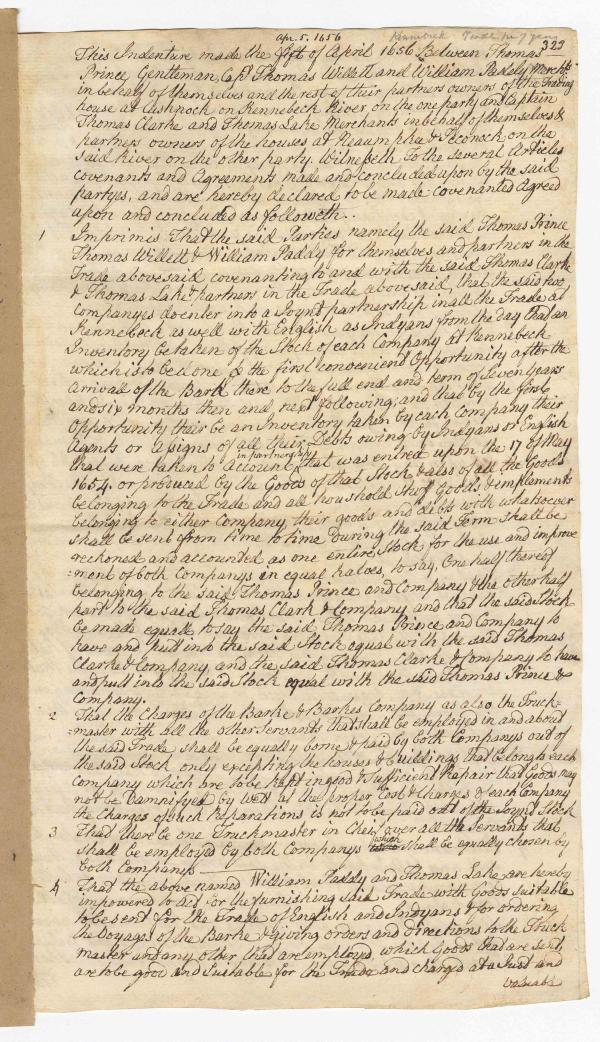 apr. 5. 1656
Kennebeck Trade for 7 years
323
This Indenture made the fift of April 1656 Between Thomas
Prince Gentleman, Capt Thomas Willett and William Paddy Merchts
in behalf of themselves and the rest of their partners owners of the Trading
house at Cushnock on Kennebeck River on the one party and Captein
Thomas Clarke and Thomas Lake Merchants in behalf of themselves &
partners owners of the houses at Neaumpke & Teconock on the
said River on the other party. Witnesseth To the Several Articles
covenants and Agreements made and concluded upon by the said
partyes, and are hereby declared to be made covenanted Agreed
upon and concluded as followeth..
1 Imprimis That the said Parties namely the said Thomas Prince
Thomas Willett & William Paddy for themselves and partners in the
Trade abovesaid covenanting to and with the said Thomas Clarke
& Thomas Lake & partners in the Trade abovesaid, that the said two
Companyes do enter into a Joynt partnership in all the Trade at
Kennebeck as well with English as Indyans from the day that an
Inventory be taken of the Stock of each Company at Kennebeck
which is to be done @ the first convenient Opportunity after the
arrival of the Bark there to the full end and term of Seven Years
and six months then and next following, and that by the first
Opportunity their be an Inventory taken by each Company their
Agents or Assigns of all their Debts owing by Indyans or English
that were taken to account in partnership that was entred upon the 17 of May
1654. or produced by the Goods of that Stock & also of all the Goods
belonging to the Trade and all houshold Stuff Goods & implaments
belonging to either Company, their goods and debts with whatsoever
shall be sent from time to time During the said Term shall be
reckoned and accounted as one entire Stock for the use and improve
=ment of both Companys in equal halves, to say, One half thereof
belonging to the said Thomas Prince and Company & the other half
part to the said Thomas Clark & Company and that the said Stock
be made equall to say the said Thomas Prince and Company to
have and put into the said Stock equal with the said Thomas
Clarke & Company and the said Thomas Clarke & Company to have
and put into the said Stock equal with the said Thomas Prince &
Company.
2 That the Charges of the Barke & Barkes Company as also the Truck=
=master with all the other Servants that shall be employed in and about
the said Trade shall be equally borne & paid by both Companys out of
the said Stock only excepting the houses & buildings that belong to each
Company which are to be kept in good & Sufficient Repair that Goods may
not be Damnifyed by Wett at the proper Cost & Charges of each Company
the Charges of such Reparations is not to be paid out of the Joynt Stock
3 That there be one Truckmaster in Cheif over all the Servants that
shall be employed by both Companys which shall be equally chosen by
both Companys
4 That the above named William Paddy and Thomas Lake are hereby
impowered to act for the furnishing said Trade with Goods suitable
to be sent for the Trade of English and Indyans & for ordering
the Voyages of the Barke & giving orders and Directions to the Truck
master and any other that are employed, which Goods that are sent,
are to be good and Suitable for the Trade and charged at a Just and
valuable